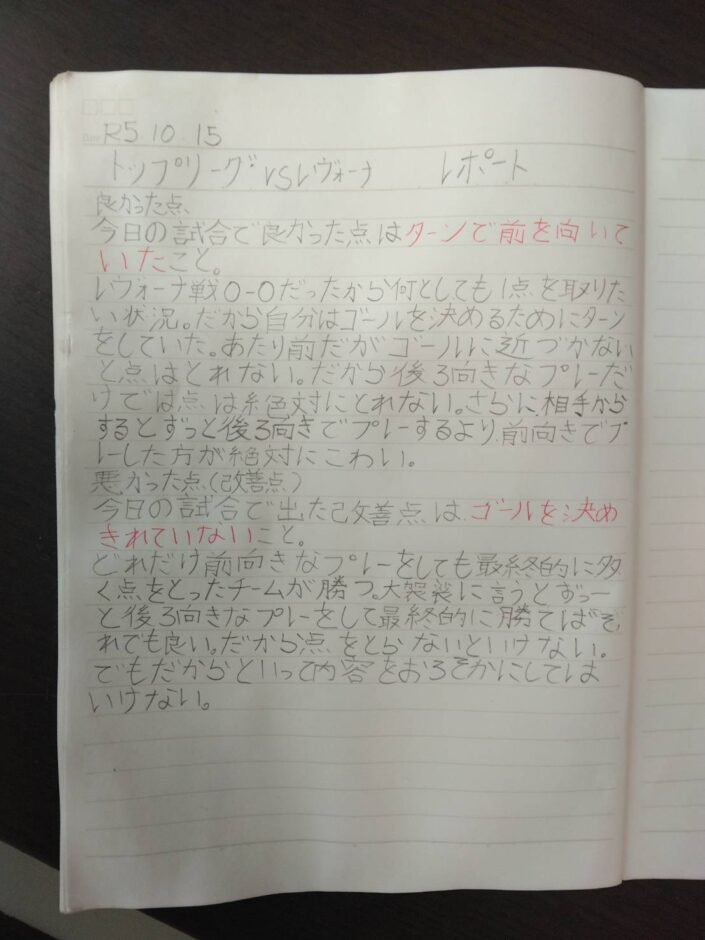 Date R5 10 . 15
トップリーグ VS レヴォーナ レポート
良かった点、
今日の試合で良かった点はターンで前を向いて
いたこと。
レヴォーナ戦0-0だったから何としても1点を取りた
い状況。だから自分はゴールを決めるためにターン
をしていた。あたり前だがゴールに近づかない
と点はとれない。だから後ろ向きなプレーだ
けでは点は絶対にとれない。さらに、相手から
するとずっと後ろ向きでプレーするより、前向きでプ
レーした方が絶対にこわい。
悪かった点、(改善点)
今日の試合で出た改善点は、ゴールを決め
きれていないこと。
どれだけ前向きなプレーをしても最終的に多
く点をとったチームが勝つ。大袈裟に言うとずっー
と後ろ向きなプレーをして最終的に勝てばそ
れでも良い。だから点をとらないといけない。
でもだからといって内容をおろそかにしては
いけない。